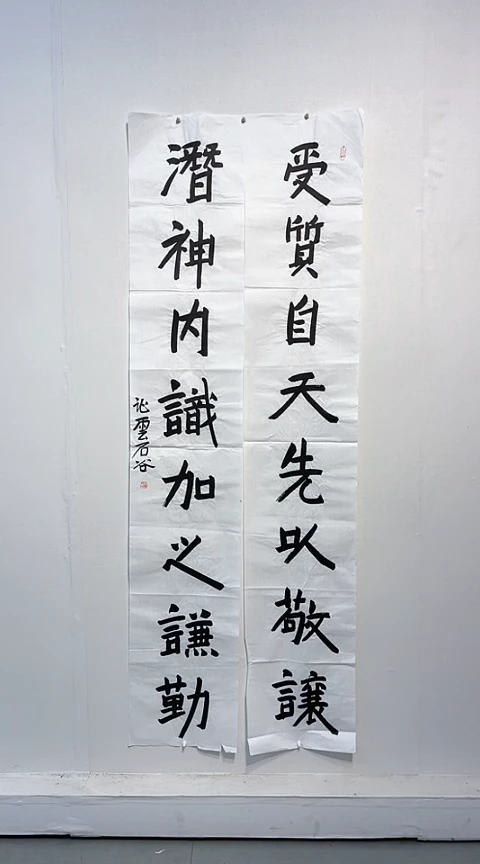 受質自天先以敬讓
潛神内識加之謙勤
雲石谷